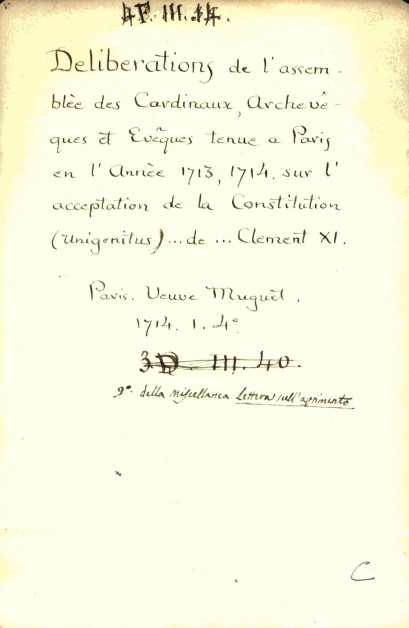 4P. III. 14.
Deliberations de l'assem-
blèe des Cardinaux, Archevê-
ques et Evêques tenue a Paris
en l'Annèe 1713, 1714. sur l'
acceptation de la Constitution
(Unigenitus)... de ... Clement XI.
Paris. Veuve Muguet.
1714. 1. 4°
3D. III. 40.
9° della Miscellanea Lettera sull'aprimento
C